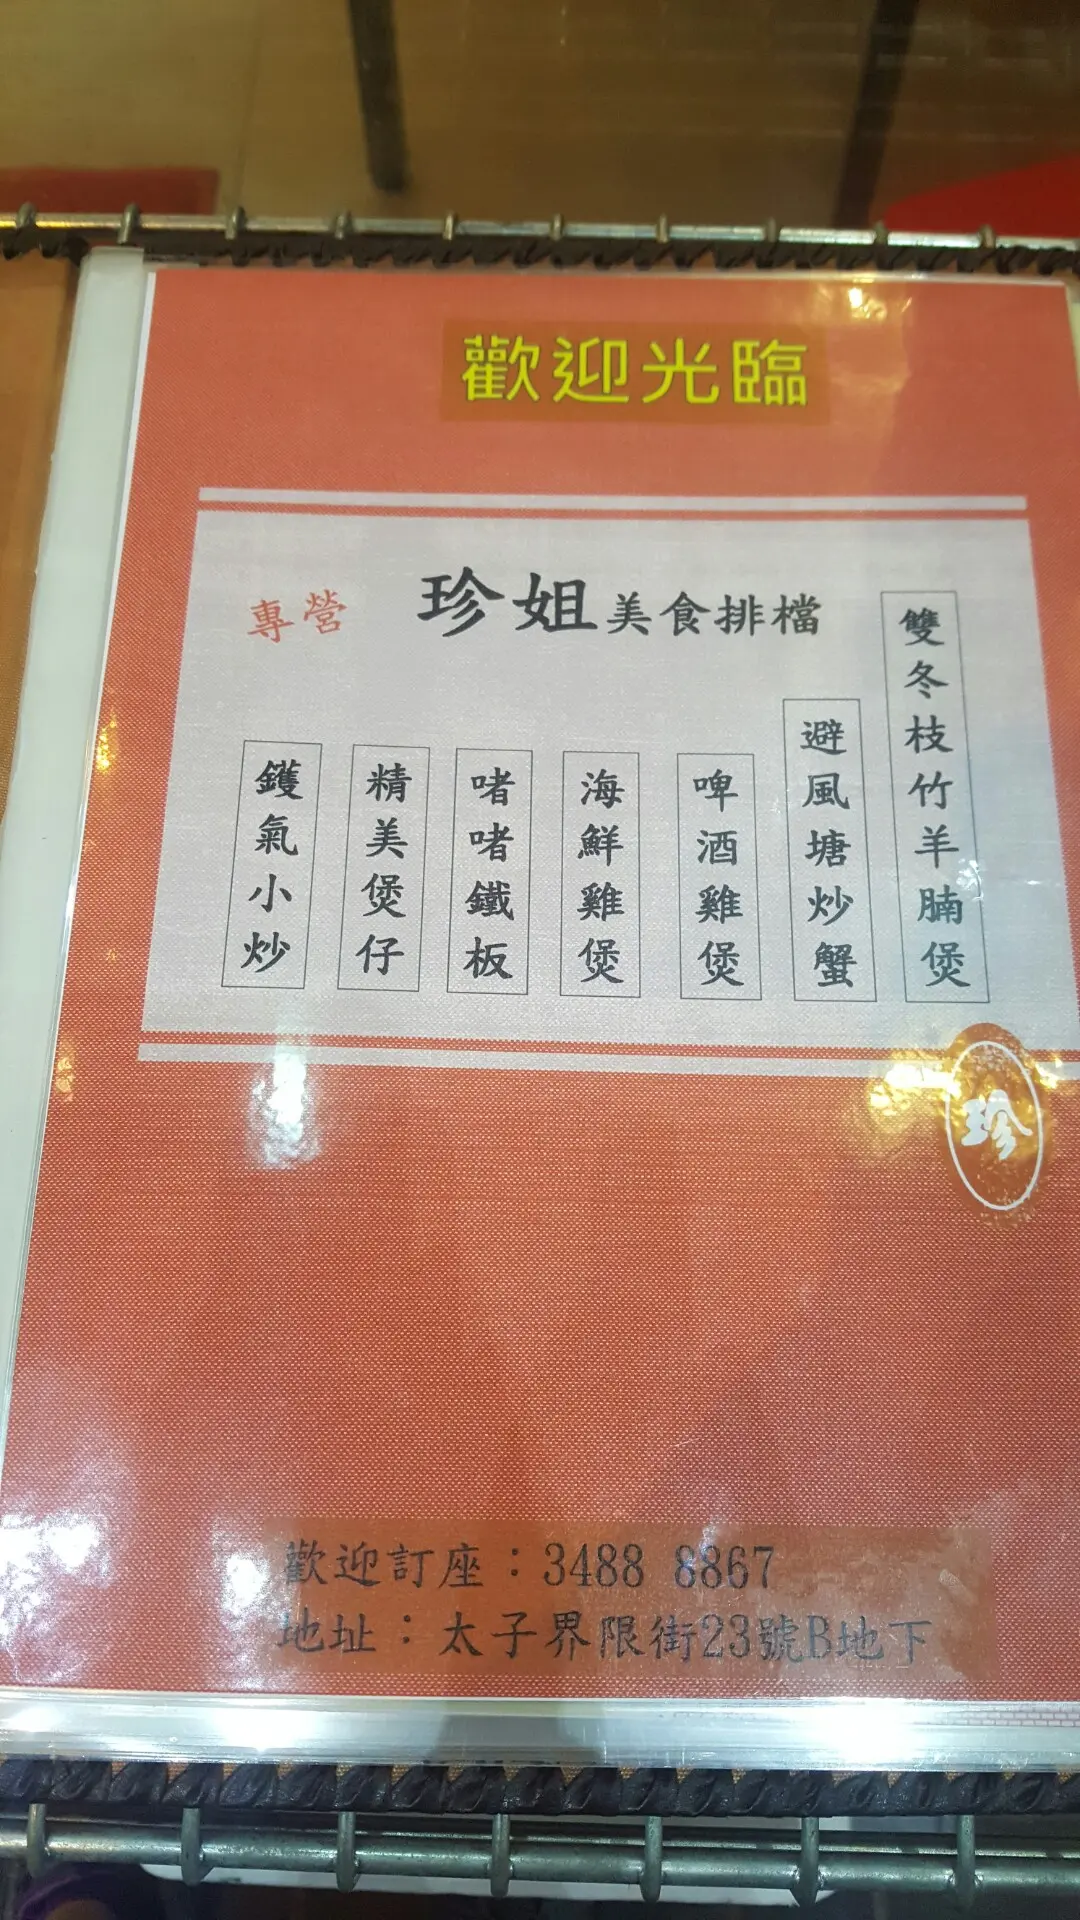 歡迎光臨
珍姐美食排檔
專營
雙冬枝竹羊腩煲
避風塘炒蟹
啤酒雞煲
海鮮雞煲
啫啫鐵板
精美煲仔
鑊氣小炒
珍
歡迎訂座：3488 8867
地址：太子界限街23號B地下